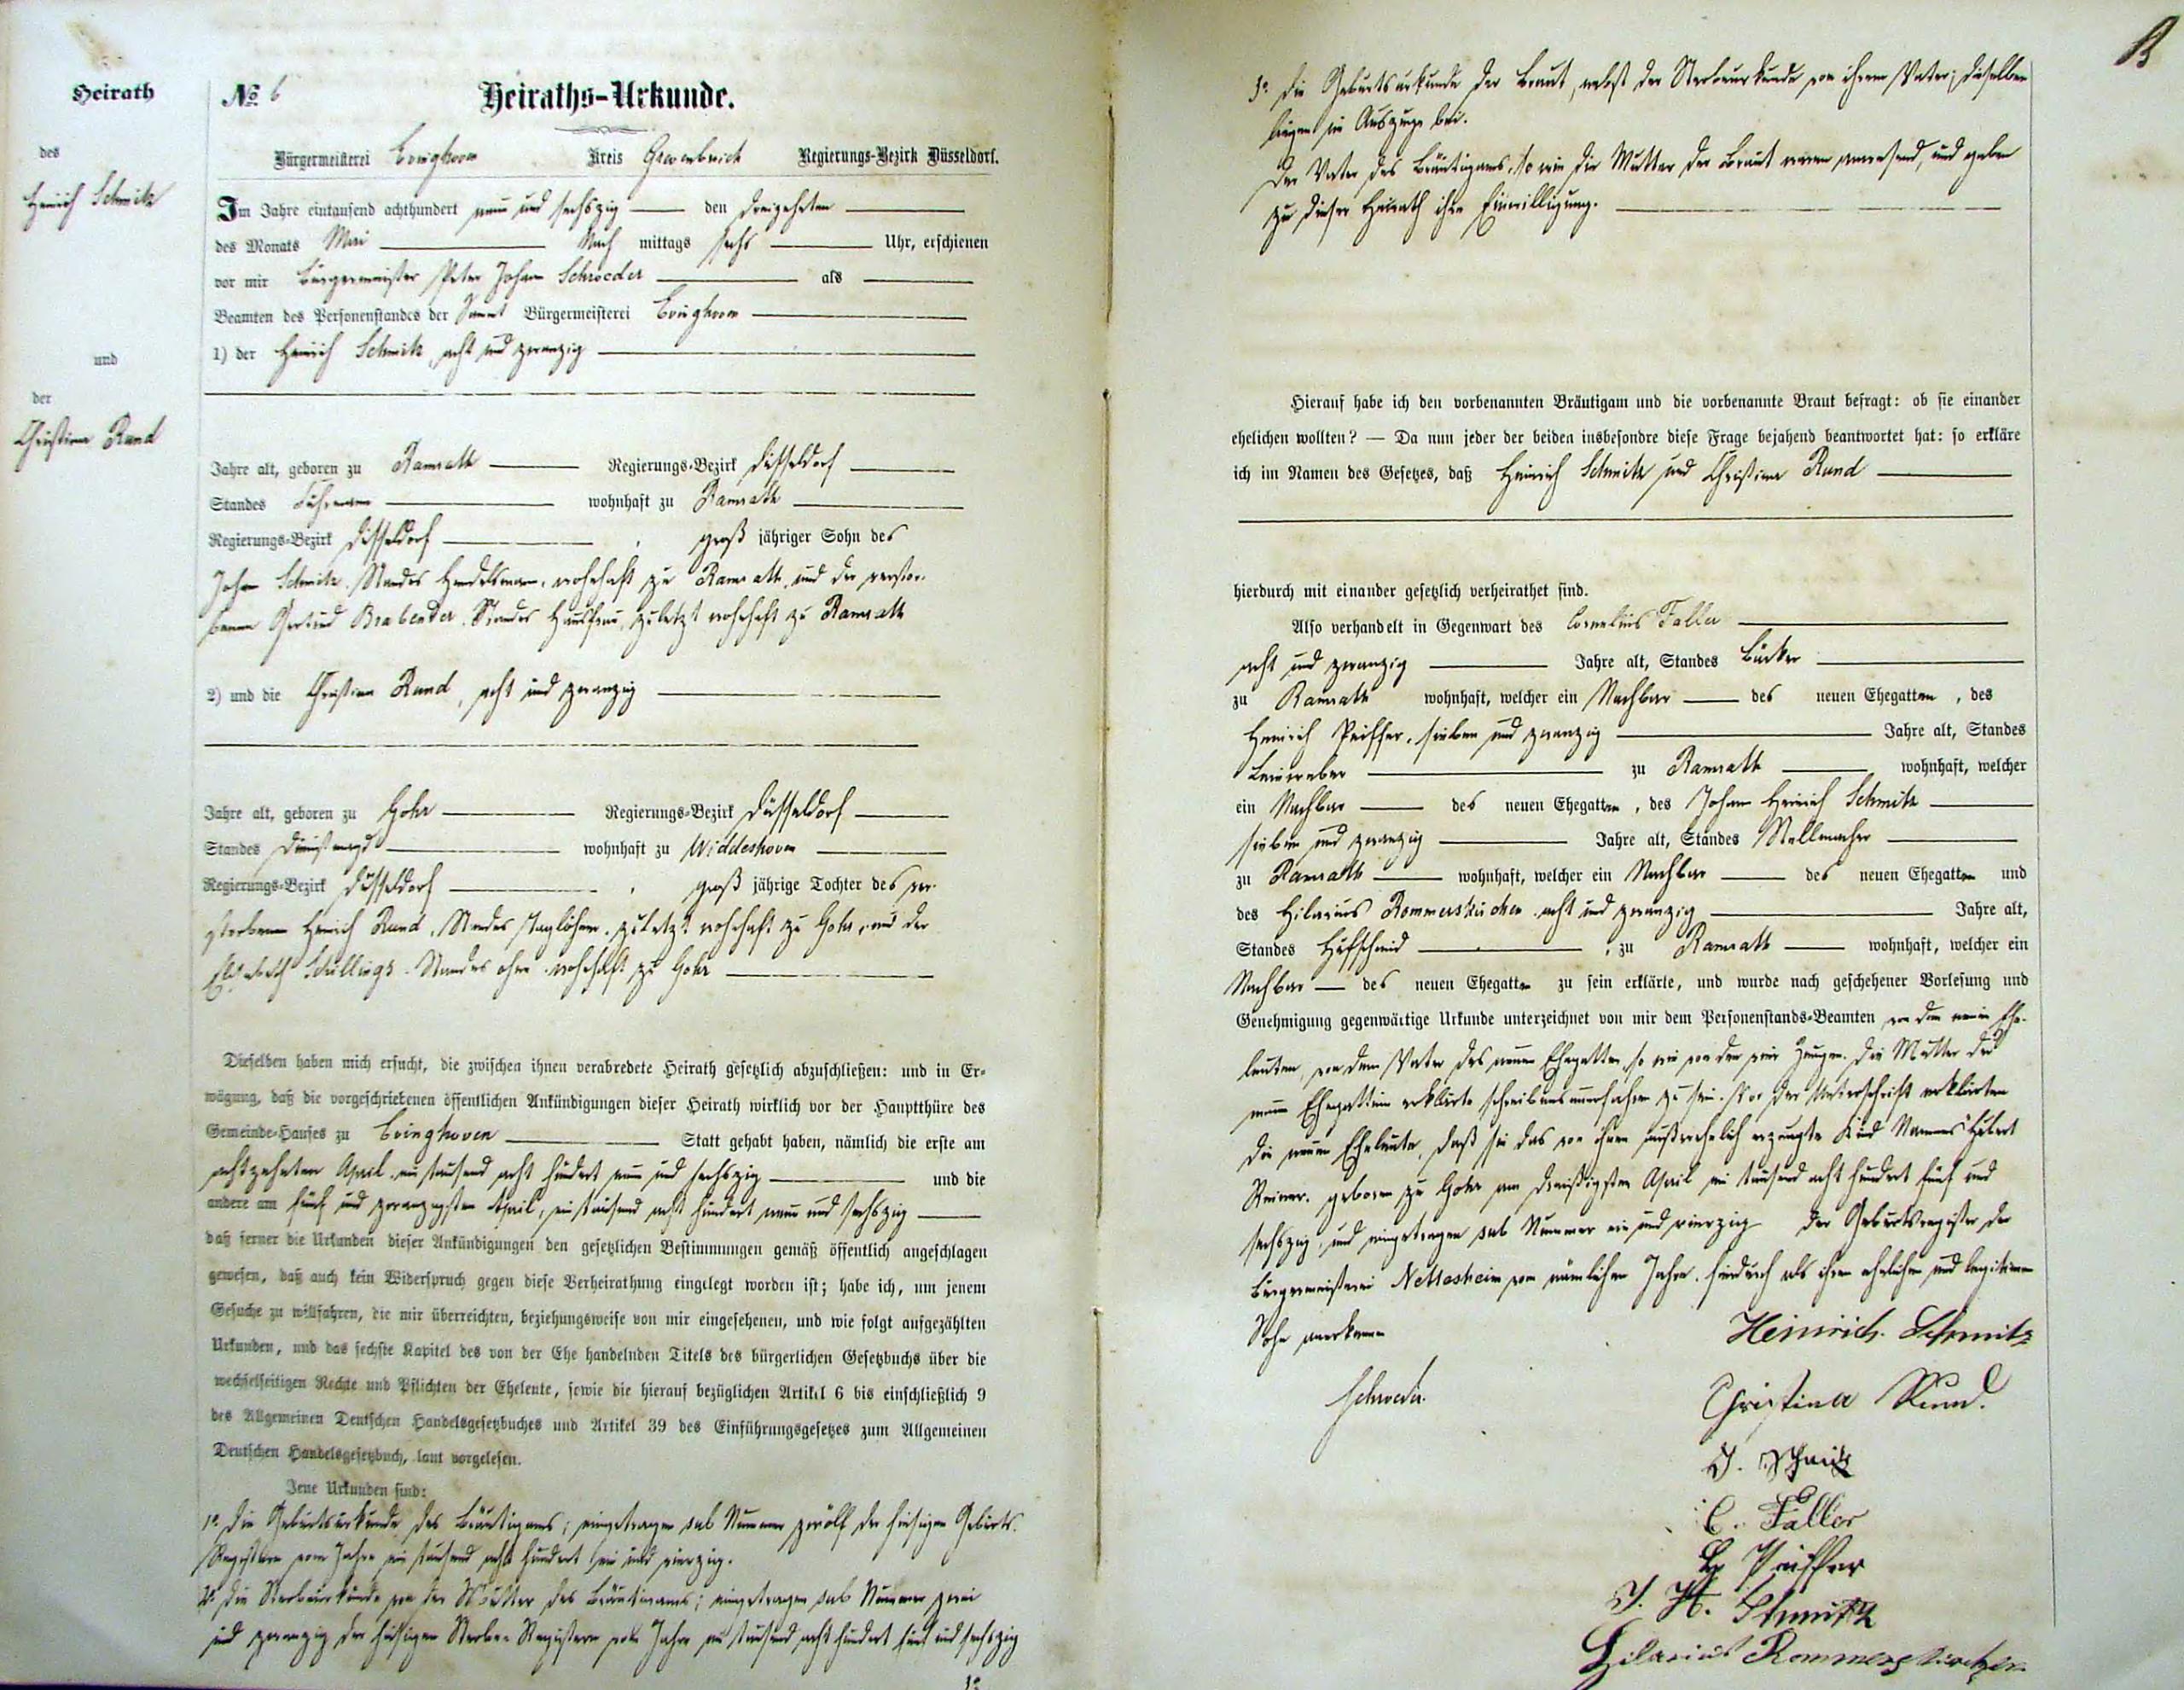 Heirath
des
Heinrich Schmitz
und
der
Christina Rund
No. 6 Heiraths-Urkunde.
Bürgermeisterei Evinghoven Kreis Grevenbroich Regierungs-Bezirk Düsseldorf.
Im Jahre eintausend achthundert neun und sechszig den dreizehnten
des Monats Mai Nach mittags sechs Uhr, erschienen
vor mir Bürgermeister Peter Johann Schroeder als
Beamten des Personenstandes der Sammt Bürgermeisterei Evinghoven
1) der Heinrich Schmitz, acht und zwanzig
Jahre alt, geboren zu Ramrath Regierungs-Bezirk Düsseldorf
Standes Fuhrmann wohnhaft zu Ramrath
Regierungs-Bezirk Düsseldorf, groß jähriger Sohn des
Johann Schmitz, Standes Handelsmann, wohnhaft zu Ramrath, und der verstor-
benen Gertrud Brabender, Standes Hausfrau, zuletzt wohnhaft zu Ramrath
2) und die Christina Rund, acht und zwanzig
Jahre alt, geboren zu Gohr Regierungs-Bezirk Düsseldorf
Standes Dienstmagd wohnhaft zu Widdeshoven
Regierungs-Bezirk Düsseldorf, groß jährige Tochter des ver-
storbenen Heinrich Rund, Standes Taglöhner, zuletzt wohnhaft zu Gohr, und der
Elisabeth Schillings, Standes ohne, wohnhaft zu Gohr
Dieselben haben mich ersucht, die zwischen ihnen verabredete Heirath gesetzlich abzuschließen: und in Er-
wägung, daß die vorgeschriebenen öffentlichen Ankündigungen dieser Heirath wirklich vor der Hauptthüre des
Gemeinde-Hauses zu Evinghoven Statt gehabt haben, nämlich die erste am
achtzehnten April, ein tausend acht hundert neun und sechszig und die
andere am fünf und zwanzigsten April, ein tausend acht hundert neun und sechszig
daß ferner die Urkunden dieser Ankündigungen den gesetzlichen Bestimmungen gemäß öffentlich angeschlagen
gewesen, daß auch kein Widerspruch gegen diese Verheirathung eingelegt worden ist; habe ich, um jenem
Gesuche zu willfahren, die mir überreichten, beziehungsweise von mir eingesehenen, und wie folgt aufgezählten
Urkunden, und das sechste Kapitel des von der Ehe handelnden Titels des bürgerlichen Gesetzbuchs über die
wechselseitigen Rechte und Pflichten der Eheleute, sowie die hierauf bezüglichen Artikel 6 bis einschließlich 9
des Allgemeinen Deutschen Handelsgesetzbuches und Artikel 39 des Einführungsgesetzes zum Allgemeinen
Deutschen Handelsgesetzbuch, laut vorgelesen.
Jene Urkunden sind:
1o. die Geburtsurkunde des Bräutigams; eingetragen sub Nummer zwölf der hiesigen Geburts-
Registern vom Jahre ein tausend acht hundert ein und vierzig.
2o. die Sterbeurkunde von der Mutter des Bräutigams; eingetragen sub Nummer zwei
und zwanzig der hiesigen Sterbe-Registern vom Jahre ein tausend acht hundert und sechszig
3o
3o. die Geburtsurkunde der Braut, nebst der Sterbeurkunde von ihrem Vater; dieselben
liegen im Auszuge bei.
Der Vater des Bräutigams, so wie die Mutter der Braut waren anwesend, und gaben
zu dieser Heirath ihre Einwilligung.
Hierauf habe ich den vorbenannten Bräutigam und die vorbenannte Braut befragt: ob sie einander
ehelichen wollten? — Da nun jeder der beiden insbesondre diese Frage bejahend beantwortet hat: so erkläre
ich im Namen des Gesetzes, daß Heinrich Schmitz und Christina Rund
hierdurch mit einander gesetzlich verheirathet sind.
Also verhandelt in Gegenwart des Cornelius Faller
acht und zwanzig Jahre alt, Standes Bäcker
zu Ramrath wohnhaft, welcher ein Nachbar des neuen Ehegatten, des
Heinrich Peiffer, sieben und zwanzig Jahre alt, Standes
Leinweber zu Ramrath wohnhaft, welcher
ein Nachbar des neuen Ehegatten, des Johann Heinrich Schmitz
sieben und zwanzig Jahre alt, Standes Stellmacher
zu Ramrath wohnhaft, welcher ein Nachbar des neuen Ehegatten und
des Hilarius Rommerskirchen acht und zwanzig Jahre alt,
Standes Hufschmid, zu Ramrath wohnhaft, welcher ein
Nachbar des neuen Ehegatten zu sein erklärte, und wurde nach geschehener Vorlesung und
Genehmigung gegenwärtige Urkunde unterzeichnet von mir dem Personenstands-Beamten von den neuen Ehe-
leuten, von dem Vater des neuen Ehegatten, so wie von den vier Zeugen. Die Mutter der
neuen Ehegattin erklärte schreibensunerfahren zu sein. Vor der Unterschrift erklärten
die neuen Eheleute, daß sie das von ihnen außerehelich erzeugte Kind Namens Hubert
Reiner, geboren zu Gohr am dreißigsten April ein tausend acht hundert fünf und
sechszig, und eingetragen sub Nummer ein und vierzig der Geburtsregister der
Bürgermeisterei Nettesheim vom nämlichen Jahre, hierdurch als ihren ehelichen und legitimen
Sohn anerkennen
Heinrich Schmitz
Schroeder.
Christina Rund.
J. Schmitz
C. Faller
H Peiffer
J. H. Schmitz
Hilarius Rommerskirchen